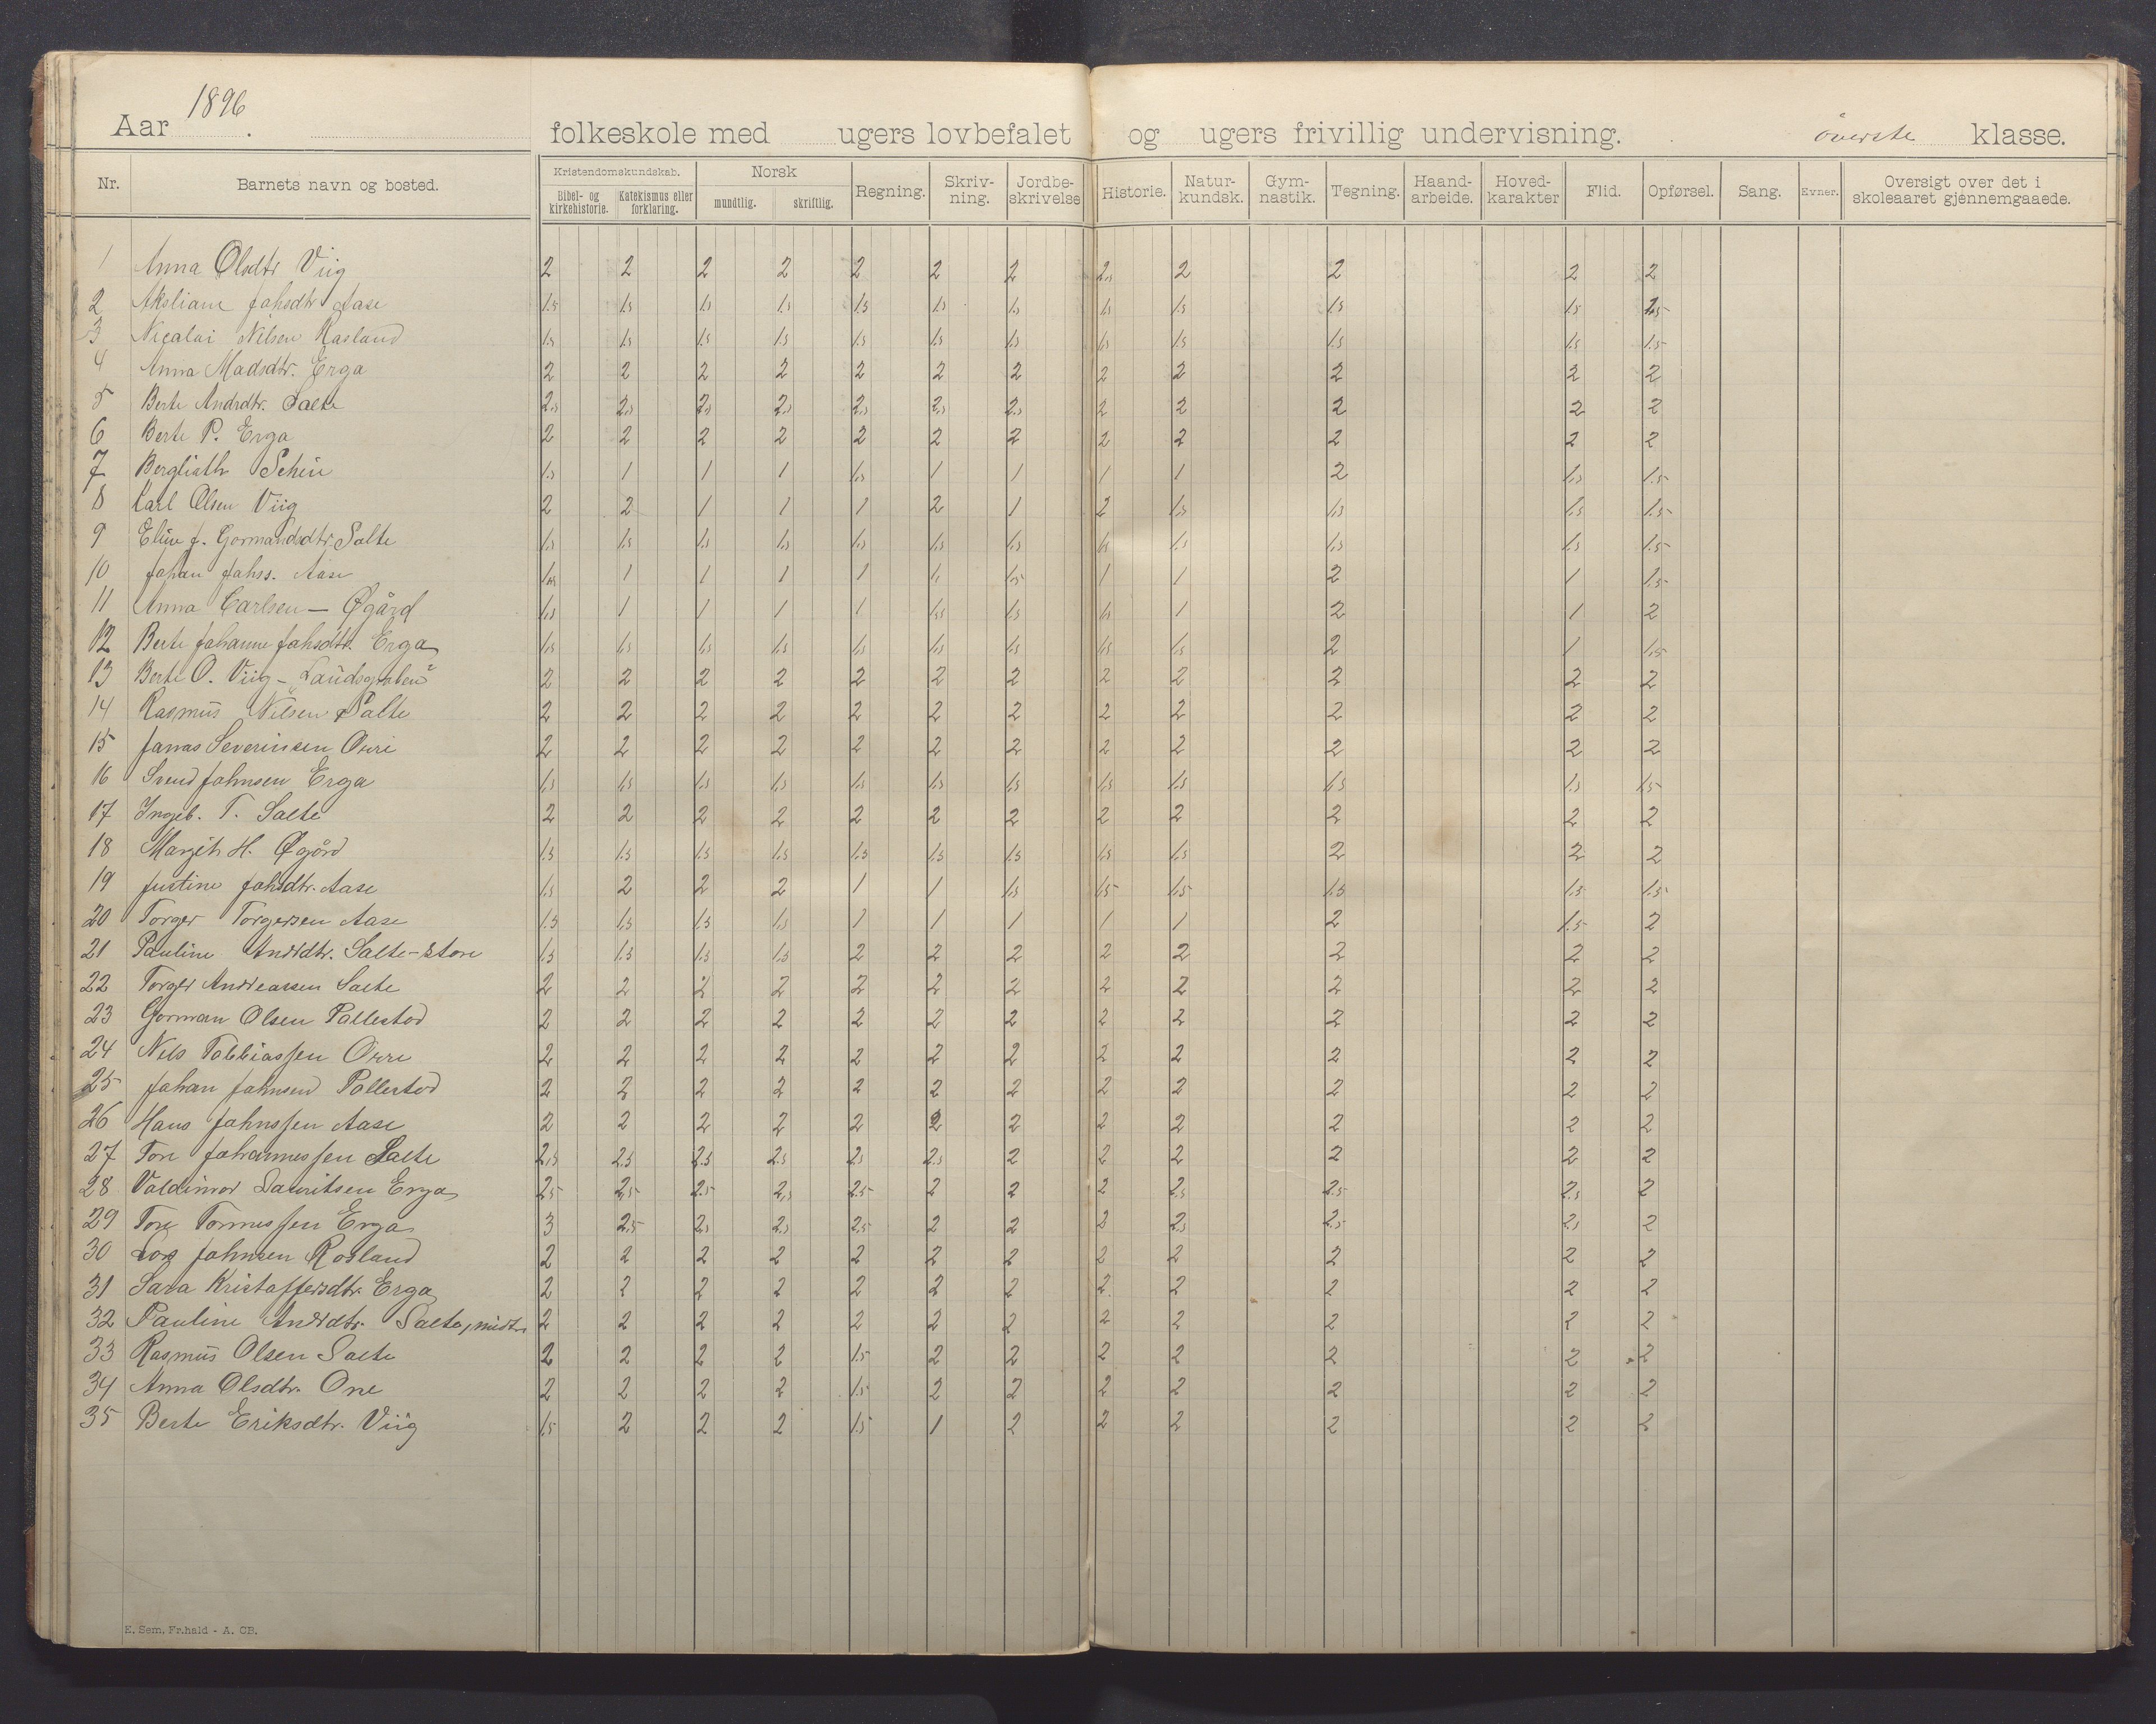 Aar 1896. folkeskole med ugers lovbefalet og ugers frivillig undervisning. överste klasse.
Nr. Barnets navn og bosted. Kristendomskundskab. Bibel- og kirkehistorie. Katekismus eller forklaring. Norsk mundtlig. skriftlig. Regning. Skriv-ning. Jordbe-skrivelse Historie. Natur-kundsk. Gym-nastik. Tegning. Haand-arbeide. Hoved-karakter Flid. Opførsel. Sang. Evner. Oversigt over det i skoleaaret gjennemgaaede.
1 Anna Olsdtr Viig 2 2 2 2 2 2 2 2.5 2 2 2 2
2 Johsdtr Aase 1.5 1.5 1.5 1.5 1.5 1.5 1.5 1.5 1.5 1.5 1.5 1.5
3 Nicolai Nilsen Rosland 1.5 1.5 1.5 1.5 1.5 1.5 1.5 1.5 1.5 1.5 1.5 1.5
4 Anna Madsdtr. Erga 2 2 2 2 2 2 2 2 2 2 2 2
5 Berte Andrdtr. Salte 2.5 2.5 2.5 2.5 2.5 2.5 2.5 2 2 2 2 2
6 Berte P. Erga 2 2 2 2 2 2 2 2 2 2 2 2
7 Berglioth 1.5 1 1 1 1.5 1 1 1 1 2 1.5 1.5
8 Karl Olsen Viig 2 2 1 1 1 2 1 2 1.5 1.5 1.5 1.5
9 Eline J. Gormandsdtr. Salte 1.5 1.5 1.5 1.5 1.5 1.5 1.5 1.5 1.5 1.5 1.5 1.5
10 Johan Johss. Aase 1.5 1 1 1 1 1. 1.5 1 1 2 1 1.5
11 Anna Carlsen — Øgård 1.5 1 1 1 1 1.5 1.5 1.5 1 2 1 2
12 Berte Johanne Johsdtr. Erga 1.5 1.5 1.5 1.5 1.5 1.5 1.5 1.5 1.5 2 1 1.5
13 Berte O. Viig - „Landsgraben" 2 2 2 2 2 2 2 2 2 2 2 2
14 Rasmus Nilsen Salte 2 2 2 2 2 2 2 2 2 2 2 2
15 Jonas Severinsen Orri 2 2 2 2 2 2 2 2 2 2 2 2
16 Svend Johnsen Erga 1.5 1.5 1.5 1.5 1.5 1.5 1.5 1.5 1.5 1.5 1.5 1.5
17 Ingeb. T. Salte 2 2 2 2 2 2 2 2 2 2 2 2
18 Margith H. Øgård 1.5 1.5 1.5 1.5 1.5 1.5 1.5 1.5 1.5 2 2 2
19 Justine Johsdtr. Aase 1.5 2 2 2 1 1 1.5 1.5 1.5 1.5 1.5 1.5
20 Torger Torgersen Aase 1.5 1.5 1.5 1.5 1 1 1 1 1 2 1.5 2
21 Pauline Andrdtr. Salte-store 1.5 1.5 1.5 1.5 2 2 2 2 2 2 2 2
22 Torger Andreassen Salte 2 2 2 2 2 2 2 2 2 2 2 2
23 Gorman Olsen Pollestod 2 2 2 2 2 2 2 2 2 2 2 2
24 Nils Tobbiassen Orre 2 2 2 2 2 2 2 2 2 2 2 2
25 Johan Johnsen Pollestod 2 2 2 2 2 2 2 2 2 2 2 2
26 Hans Johnssen Aase 2 2 2 2 2 2 2 2 2 2 2 2
27 Tore Johannessen Salte 2.5 2.5 2.5 2.5 2.5 2.5 2 2 2 2 2 2
28 Valdimar Lauritsen Erga 2.5 2.5 2.5 2.5 2.5 2 2 2 2.5 2.5 2.5 2
29 Tore Tonnessen Erga 3 2.5 2.5 2.5 2.5 2 2 2 2.5 2.5 2.5 2
30 Lars Johnsen Rosland 2 2 2 2 2 2 2 2 2 2 2 2
31 Sara Kristoffersdtr. Erga 2 2 2 2 2 2 2 2 2 2 2 2
32 Pauline Andrdtr. Salte, midtr. 2 2 2 2 2 2 2 2 2 2 2 2
33 Rasmus Olsen Salte 2 2 2 2 1.5 2 2 2 2 2 2 2
34 Anna Olsdtr. Orre 2 2 2 2 1.5 2 2 2 2 2 2 2
35 Berte Eriksdtr. Viig 1.5 2 2 2 1.5 1 2 2 2 2 2 2
E. Sem. Fr.hald - A. CB.